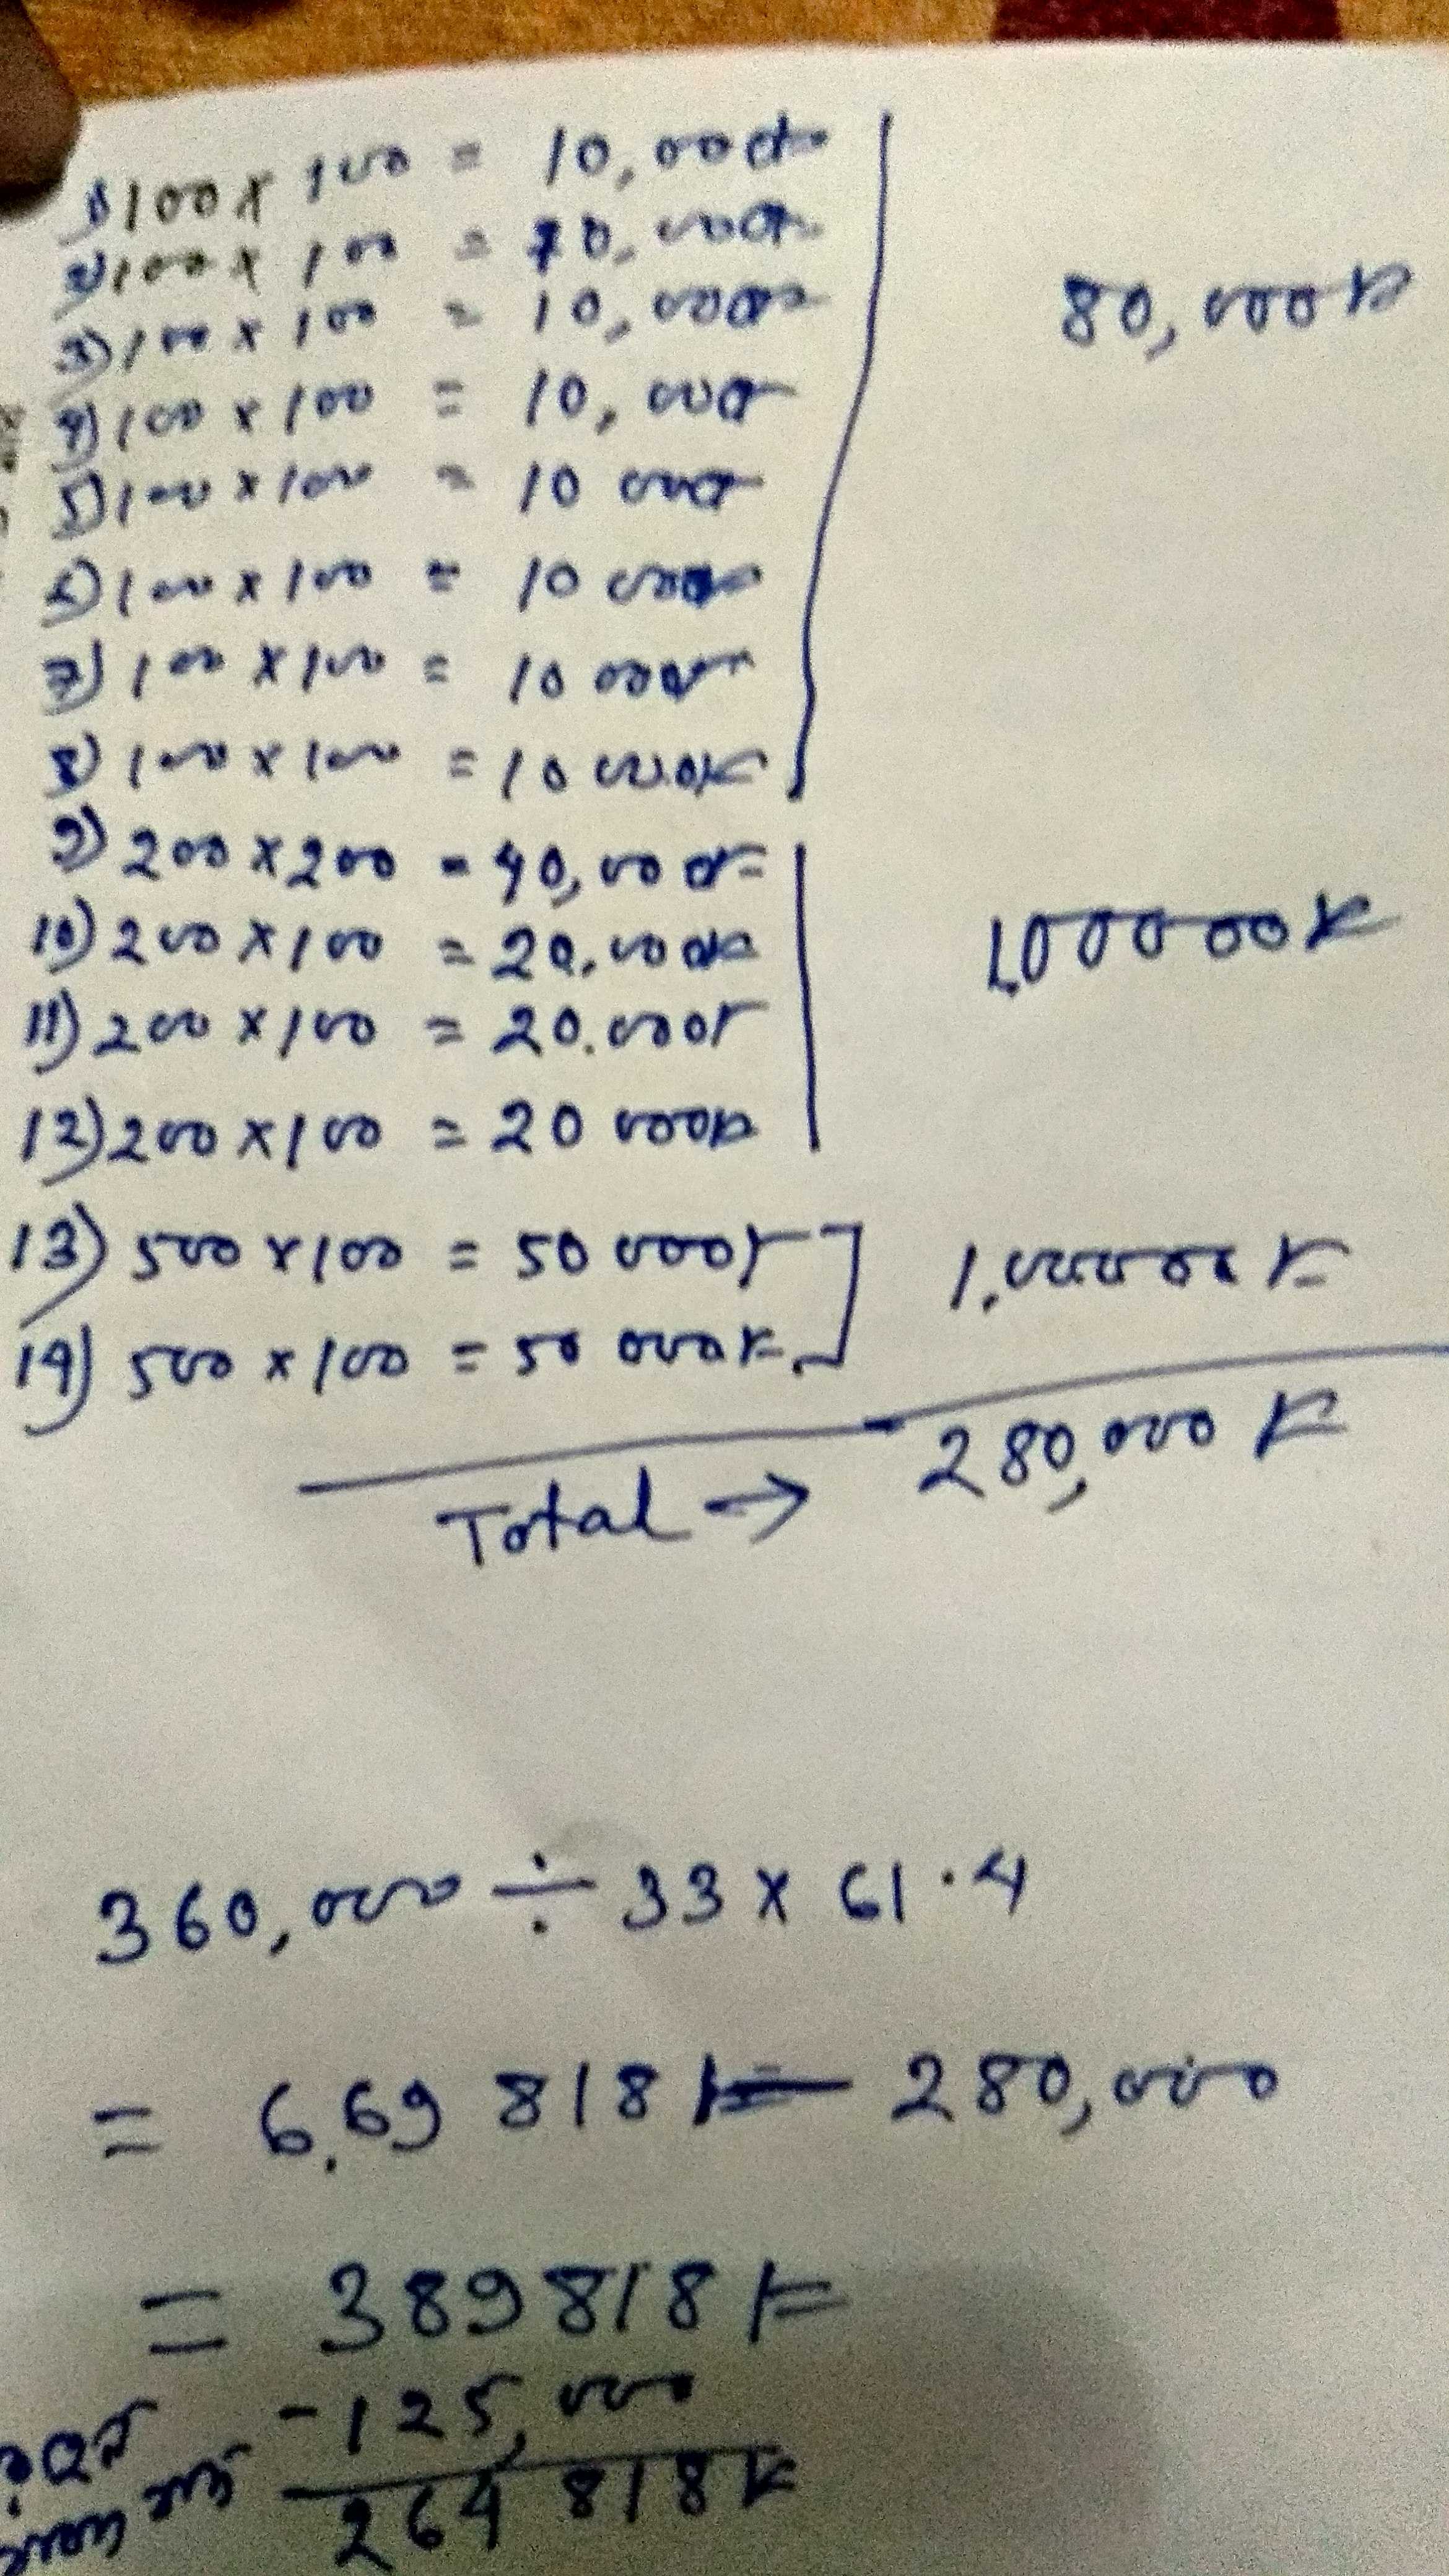 1) 100 x 100 = 10,000/-
2) 100 x 100 = 10,000/-
3) 100 x 100 = 10,000/-
80,000/=
4) 100 x 100 = 10,000/-
5) 100 x 100 = 10 000/-
6) 100 x 100 = 10 000/=
7) 100 x 100 = 10 000/-
8) 100 x 100 = 10 000/=
9) 200 x 200 = 40,000/=
10) 200 x 100 = 20,000/=
1,00000/=
11) 200 x 100 = 20.000/-
12) 200 x 100 = 20 000/=
13) 500 x 100 = 50 000/-
1,00000/=
14) 500 x 100 = 50 000/=
Total → 280,000/=
360,000 ÷ 33 x 61.4
= 6,69 818/= - 280,000
= 389818/=
-125,000
264 818/=